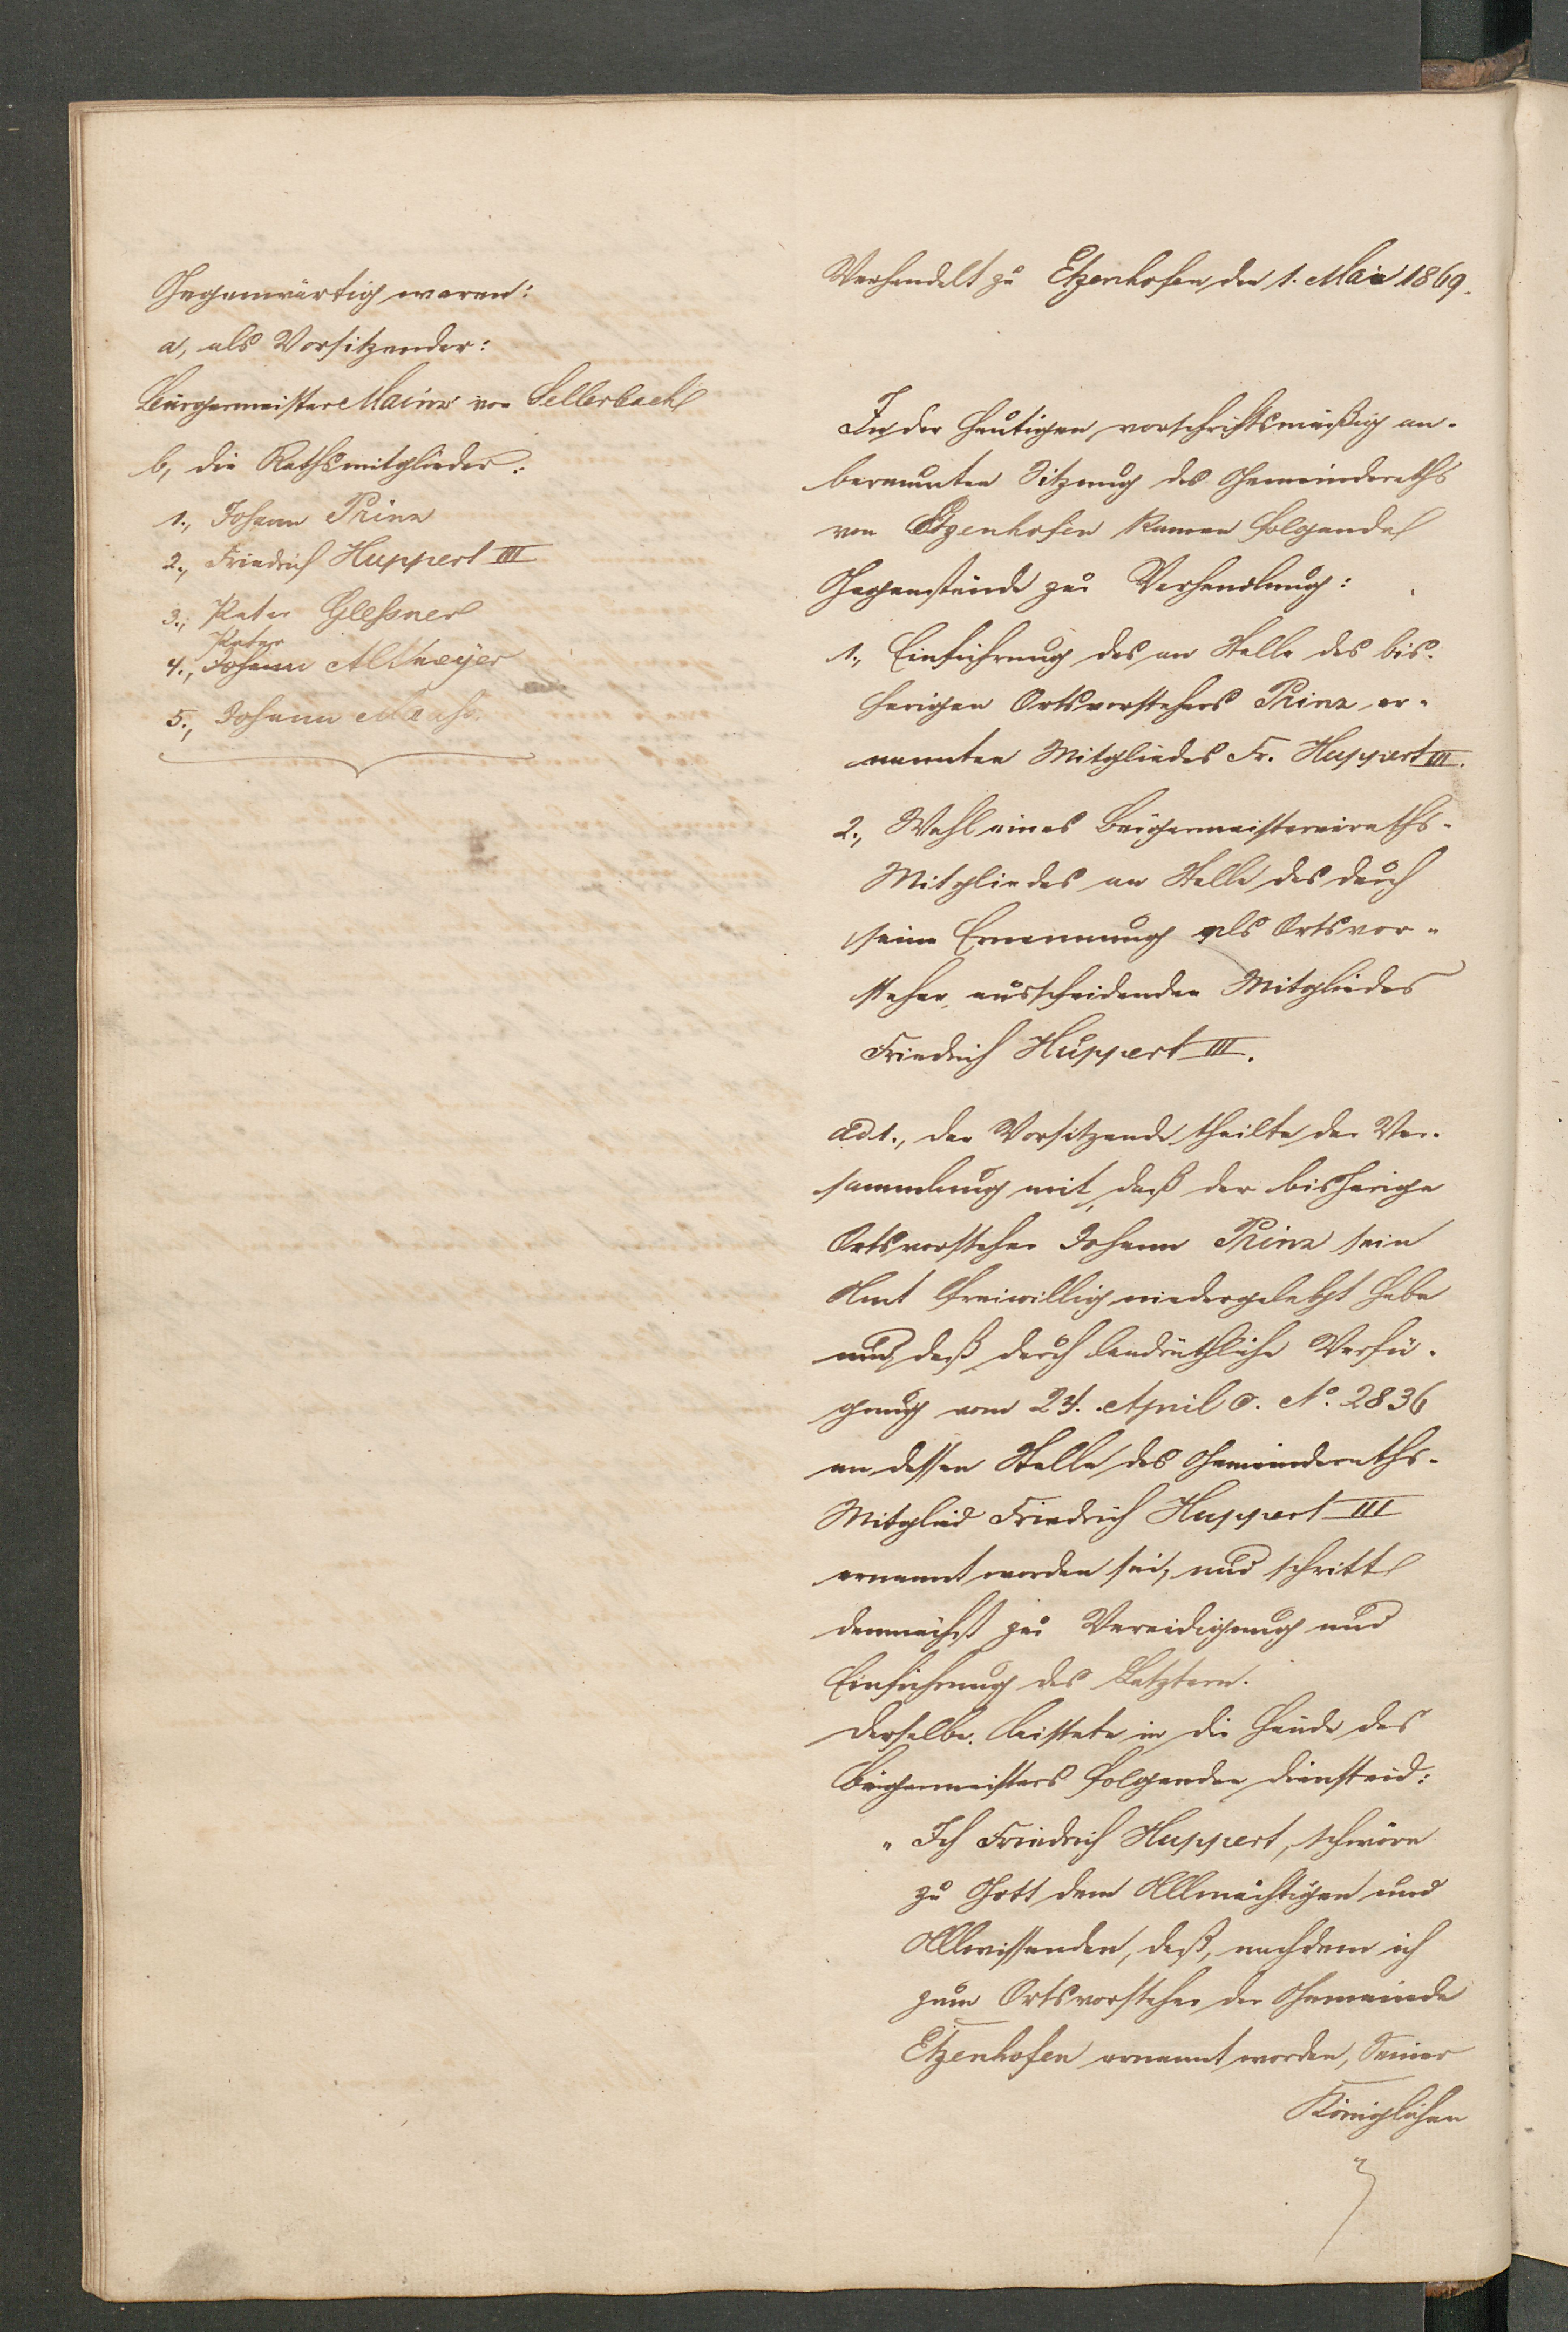 Gegenwärtig waren:
a, als Vorsitzender:
Bürgermeister Mainz von Sellerbach
b, die Rathsmitglieder:
1., Johann Prinz
2., Friedrich Huppert III
3., Peter Gleßner
Peter
4., Johann Altmeyer
5., Johann
Verhandelt zu Etzenhofen den 1. Mai 1869.
In der heutigen vorschriftsmäßig an-
beraumten Sitzung des Gemeinderaths
von Etzenhofen kamen folgende
Gegenstände zur Verhandlung:
1., Einführung des an Stelle des bis-
herigen Ortsvorstehers Prinz er-
nannten Mitgliedes Fr. Huppert III.
2., Wahl eines Bürgermeistereiraths-
Mitgliedes an Stelle des durch
seine Ernennung als Ortsvor-
steher ausscheidenden Mitgliedes
Friedrich Huppert III.
ad 1., der Vorsitzende theilte der Ver-
sammlung mit, daß der bisherige
Ortsvorsteher Johann Prinz sein
Amt freiwillig niedergelegt habe
und daß durch landräthliche Verfü-
gung vom 24. April c. No. 2836
an dessen Stelle das Gemeinderaths-
Mitglied Friedrich Huppert III
ernannt worden sei, und schritt
demnächst zur Vereidigung und
Einführung des Letztern.
Derselbe leistete in die Hände des
Bürgermeisters folgenden Diensteid:
"Ich Friedrich Huppert, schwöre
zu Gott dem Allmächtigen und
Allwissenden, daß, nachdem ich
zum Ortsvorsteher der Gemeinde
Etzenhofen ernannt worden, Seiner
Königlichen